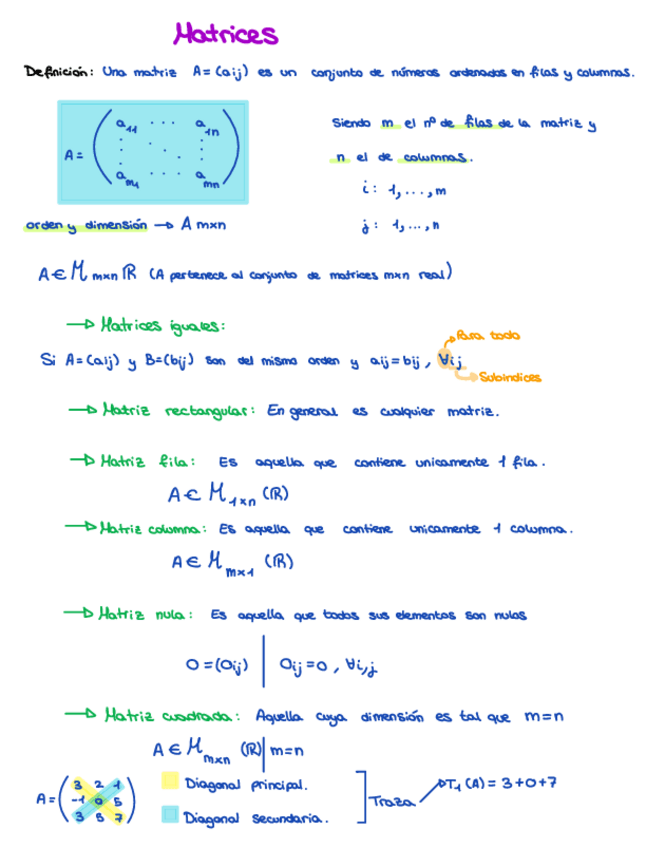 Matrices
Definición: Una matriz A=(aij) es un conjunto de números ordenados en filas y columnas.
A = ( a11 ... a1n
. . .
am1 ... amn )
Siendo m el nº de filas de la matriz y
n el de columnas.
i: 1,...,m
j: 1,...,n
orden y dimensión → A mxn
A ∈ M mxn ℝ (A pertenece al conjunto de matrices mxn real)
→ Matrices iguales:
Para todo
Si A=(aij) y B=(bij) son del mismo orden y aij=bij, ∀ij
Subindices
→ Matriz rectangular: En general es cualquier matriz.
→ Matriz fila: Es aquella que contiene unicamente 1 fila.
A ∈ M 1xn (ℝ)
→ Matriz columna: Es aquella que contiene unicamente 1 columna.
A ∈ M mx1 (ℝ)
→ Matriz nula: Es aquella que todos sus elementos son nulos
O=(Oij) | Oij=0, ∀i,j
→ Matriz cuadrada: Aquella cuya dimensión es tal que m=n
A ∈ M mxn (ℝ) | m=n
A = ( 3 2 1
-1 0 5
3 5 7 )
Diagonal principal.
Diagonal secundaria.
Traza → T1 (A) = 3+0+7